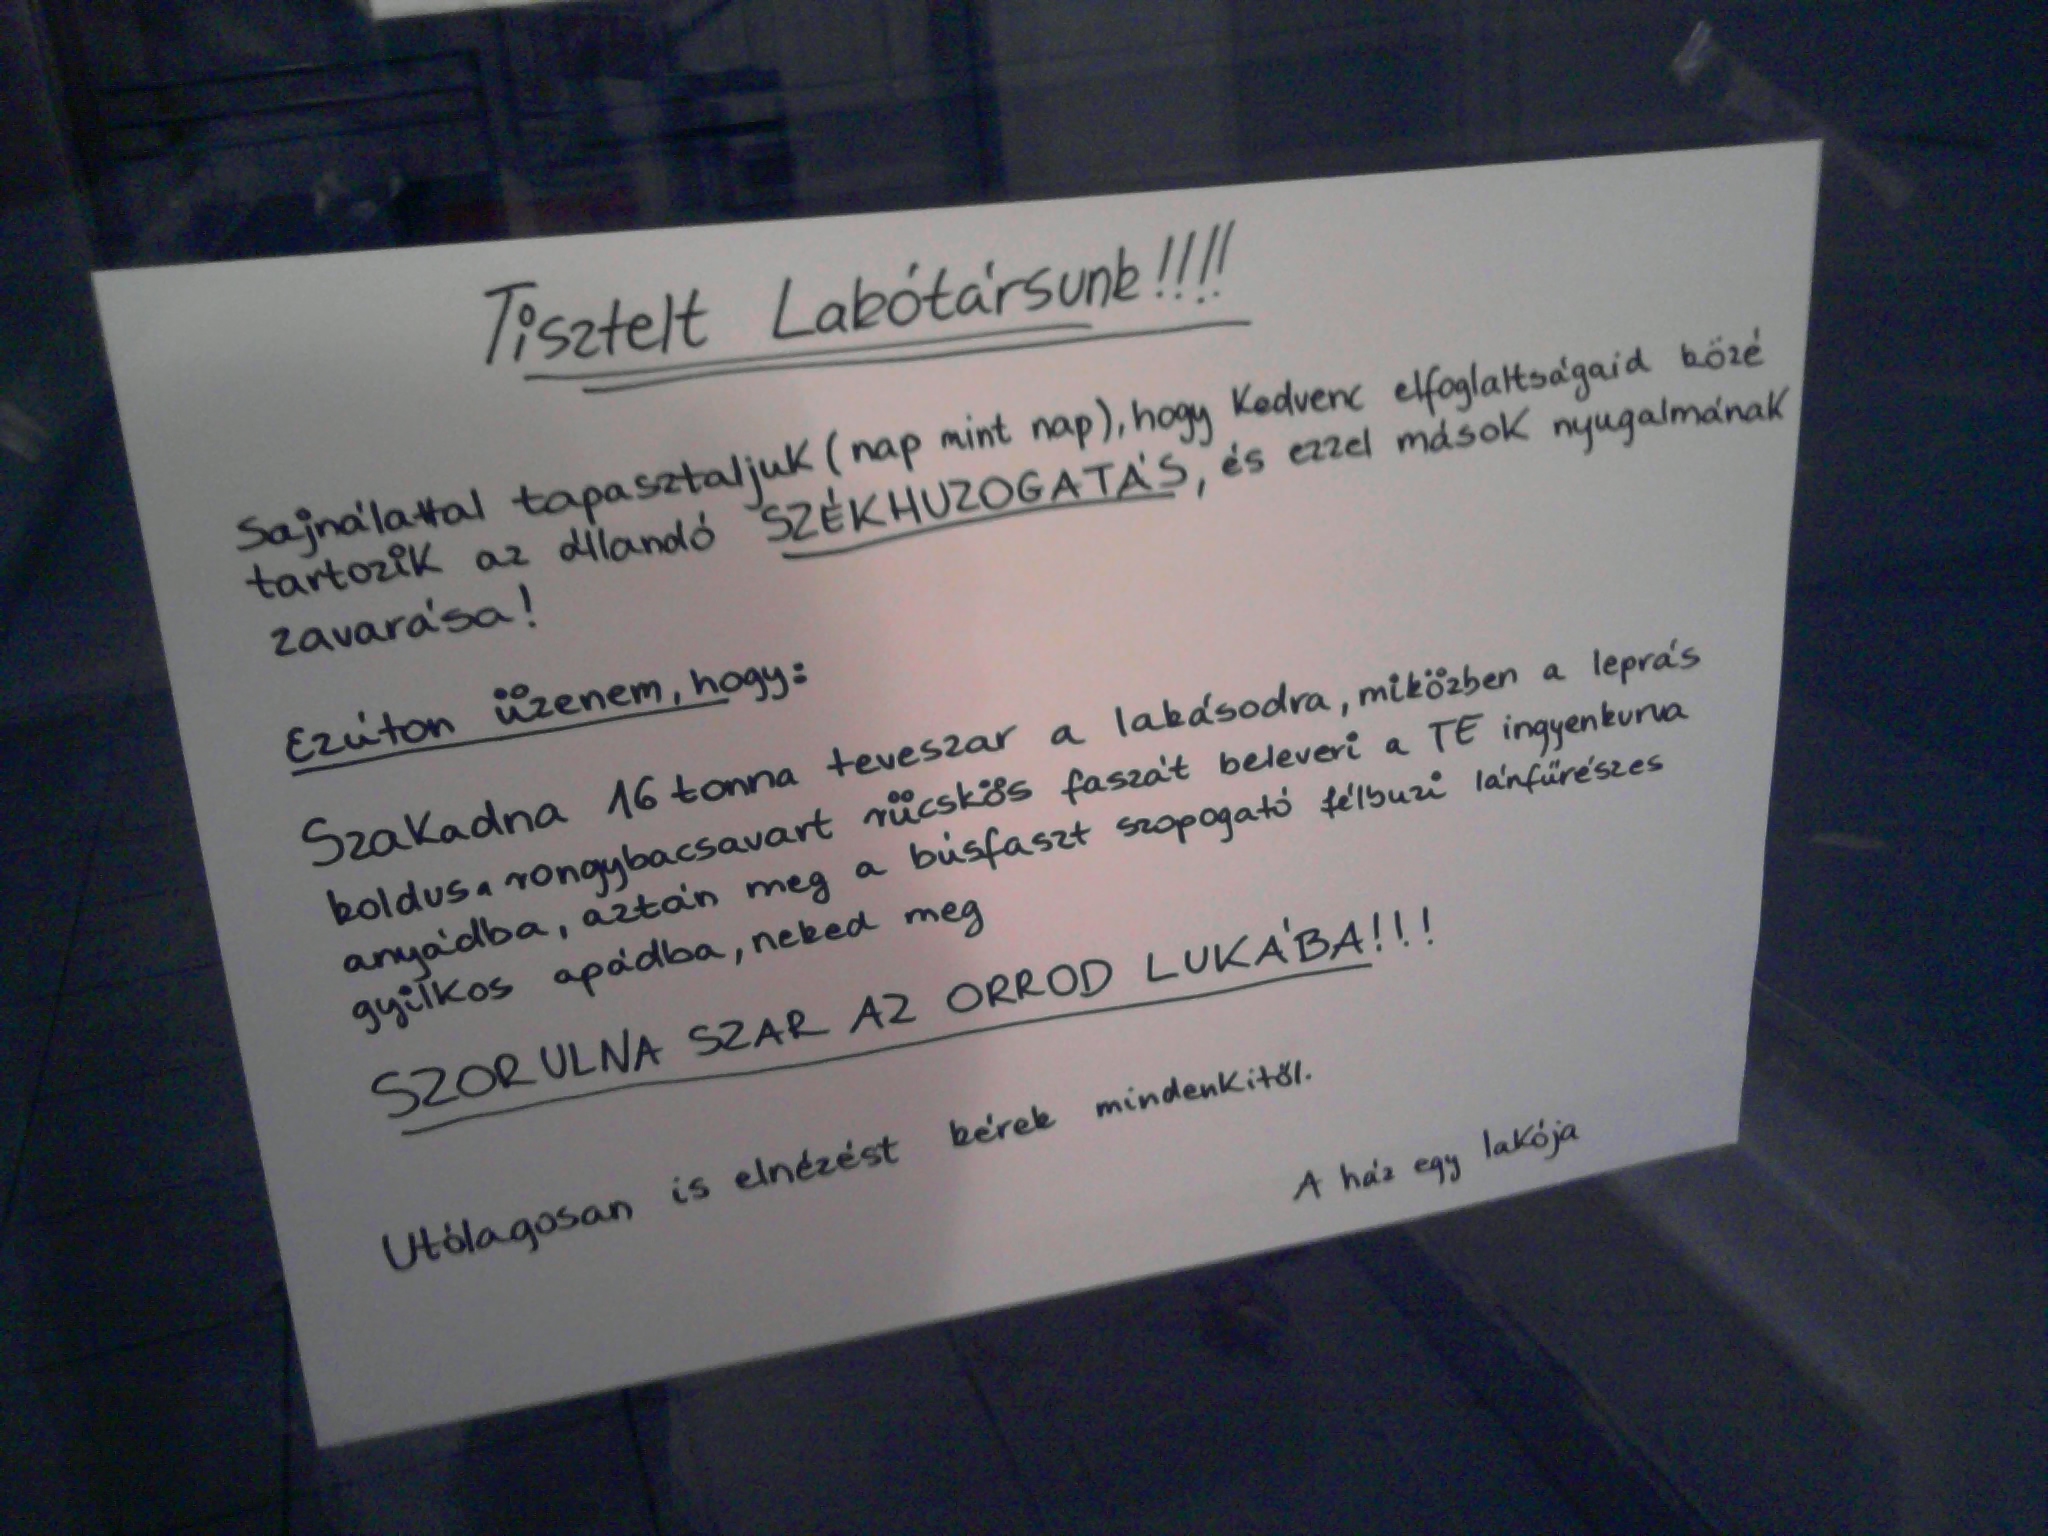 Tisztelt Lakótársunk!!!!
Sajnálattal tapasztaljuk (nap mint nap), hogy kedvenc elfoglaltságaid közé
tartozik az állandó SZÉKHUZOGATÁS, és ezzel mások nyugalmának
zavarása!
Ezúton üzenem, hogy:
Szakadna 16 tonna teveszar a lakásodra, miközben a leprás
koldus a rongybacsavart rücskös faszát beleveri a TE ingyenkurva
anyádba, aztán meg a búsfaszt szopogató félbuzi lánfűrészes
gyilkos apádba, neked meg
SZORULNA SZAR AZ ORROD LUKÁBA!!!
Utólagosan is elnézést kérek mindenkitől.
A ház egy lakója